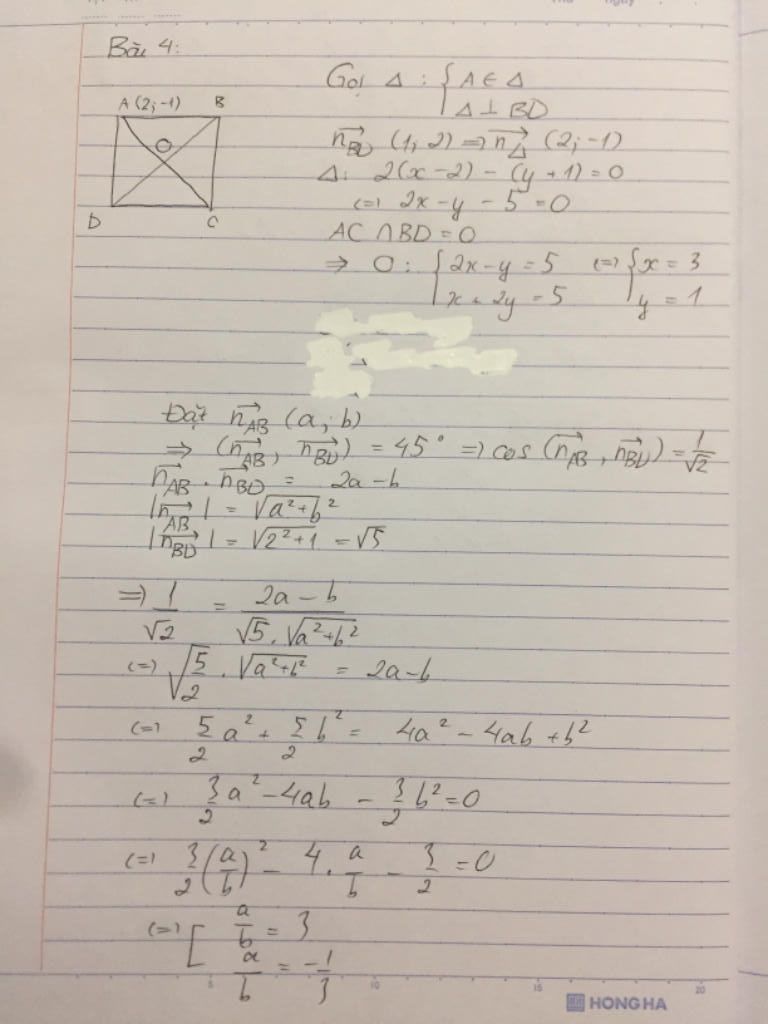 Bài 4:
A (2;-1) B
O
D C
Gọi Δ : { A ∈ Δ
Δ ⊥ BD
n⃗_BD (1; 2) => n⃗_Δ (2; -1)
Δ: 2(x-2) - (y+1) = 0
(=) 2x - y - 5 = 0
AC ∩ BD = O
⇒ O : { 2x - y = 5 (=) { x = 3
x + 2y = 5 y = 1
Đặt n⃗_AB (a; b)
⇒ (n⃗_AB, n⃗_BD) = 45° => cos (n⃗_AB, n⃗_BD) = 1/√2
n⃗_AB . n⃗_BD = 2a - b
|n⃗_AB| = √(a² + b²)
|n⃗_BD| = √(2² + 1) = √5
=> 1/√2 = (2a - b)/(√5 . √(a² + b²))
(=) √(5/2) . √(a² + b²) = 2a - b
(=) 5/2 a² + 5/2 b² = 4a² - 4ab + b²
(=) 3/2 a² - 4ab - 3/2 b² = 0
(=) 3/2 (a/b)² - 4 . a/b - 3/2 = 0
(=) [ a/b = 3
a/b = -1/3
5 10 15 20
HONG HA